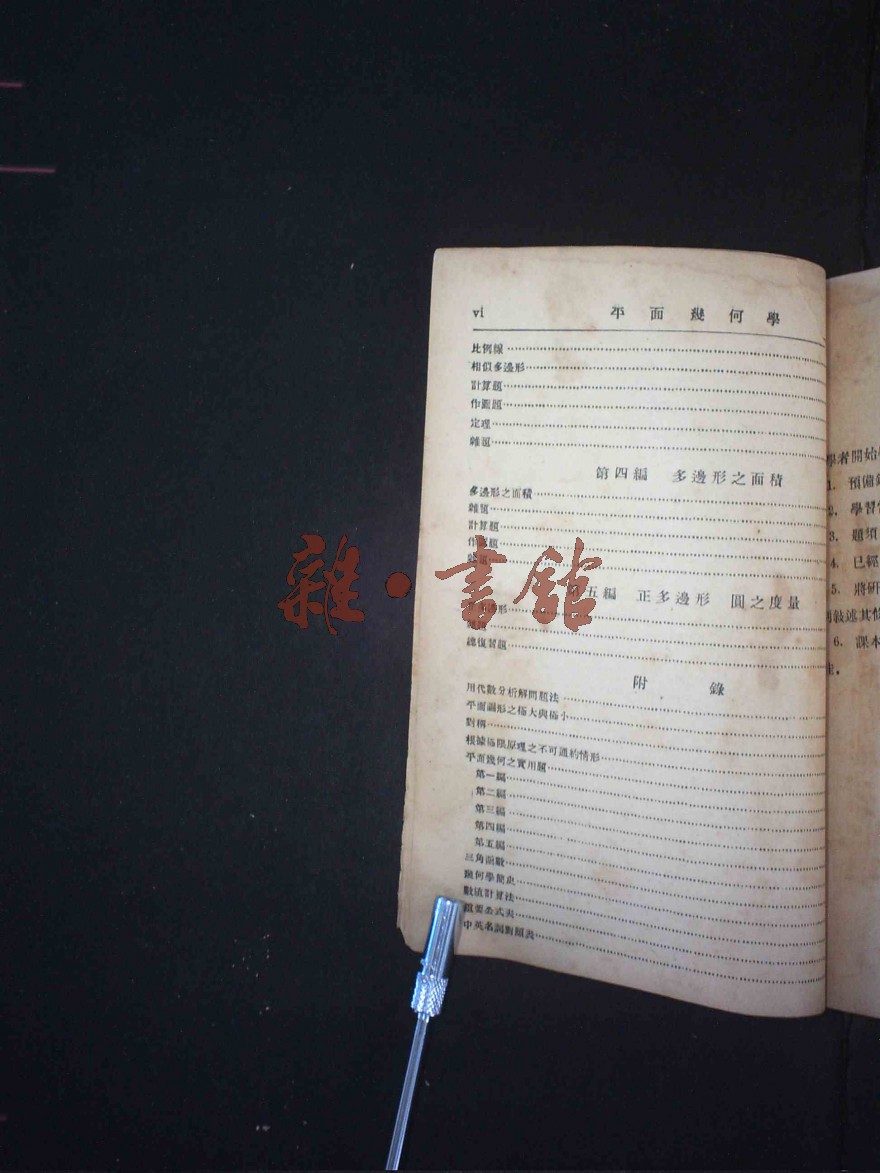 vi 平面幾何學
比例線
相似多邊形
計算題
作圖題
定理
雜題
第四編 多邊形之面積
多邊形之面積
雜題
計算題
作圖題
雜題
第五編 正多邊形 圓之度量
正多邊形
總復習題
附錄
用代數分析解問題法
平面圖形之極大與極小
對稱
根據極限原理之不可通約情形
平面幾何之實用題
第一編
第二編
第三編
第四編
第五編
三角函數
幾何學簡史
數值計算法
重要公式表
中英名詞對照表
學者開始
1. 預備
2. 學習
3. 題須
4. 已經
5. 將研
敍述其他
6. 課本
雜·書館